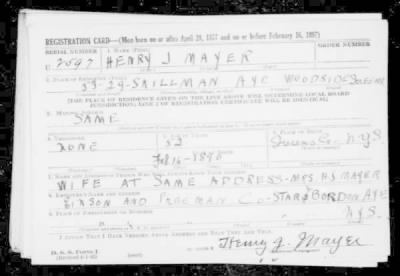 REGISTRATION CARD—(Men born on or after April 28, 1877 and on or before February 16, 1897)
SERIAL NUMBER 1. NAME (Print) ORDER NUMBER
U 2597 HENRY J MAYER
2. PLACE OF RESIDENCE (Print)
53-29-SKILLMAN AVE WOODSIDE
[THE PLACE OF RESIDENCE GIVEN ON THE LINE ABOVE WILL DETERMINE LOCAL BOARD
JURISDICTION; LINE 2 OF REGISTRATION CERTIFICATE WILL BE IDENTICAL]
3. MAILING ADDRESS
SAME
4. TELEPHONE 5. AGE IN YEARS 6. PLACE OF BIRTH
NONE 52
DATE OF BIRTH
Feb 16-1890 N.Y.S.
7. NAME AND ADDRESS OF PERSON WHO WILL ALWAYS KNOW YOUR ADDRESS
WIFE AT SAME ADDRESS-MRS H J MAYER
8. EMPLOYER'S NAME AND ADDRESS
AND FREEMAN CO-STAR & BORDON AVE
9. PLACE OF EMPLOYMENT OR BUSINESS
N.Y.S.
I AFFIRM THAT I HAVE VERIFIED ABOVE ANSWERS AND THAT THEY ARE TRUE.
D. S. S. Form 1
Henry J. Mayer